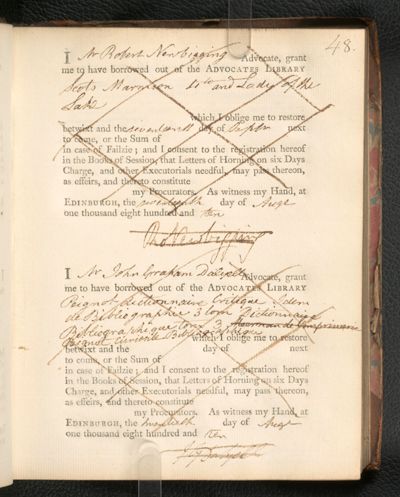 48.
I Mr Robert Newbigging Advocate, grant
me to have borrowed out of the ADVOCATES LIBRARY
Scots Marmion 4to and Lady of the
Lake
which I oblige me to restore
betwixt and the seventeenth day of Septr next
to come, or the Sum of
in case of Failzie; and I consent to the registration hereof
in the Books of Session, that Letters of Horning on six Days
Charge, and other Executorials needful, may pass thereon,
as effeirs, and thereto constitute
my Procurators. As witness my Hand, at
EDINBURGH, the seventeenth day of Augt
one thousand eight hundred and ten
Ro Newbigging
I Mr John Graham Dalyell Advocate, grant
me to have borrowed out of the ADVOCATES LIBRARY
Peignot dictionnaire Critique Idem
de Bibliographie 3 tom Dictionnaire
Bibliographique tom 3
Peignot Curiosités
which I oblige me to restore
betwixt and the day of next
to come, or the Sum of
in case of Failzie; and I consent to the registration hereof
in the Books of Session, that Letters of Horning on six Days
Charge, and other Executorials needful, may pass thereon,
as effeirs, and thereto constitute
my Procurators. As witness my Hand, at
EDINBURGH, the twentieth day of Augt
one thousand eight hundred and ten